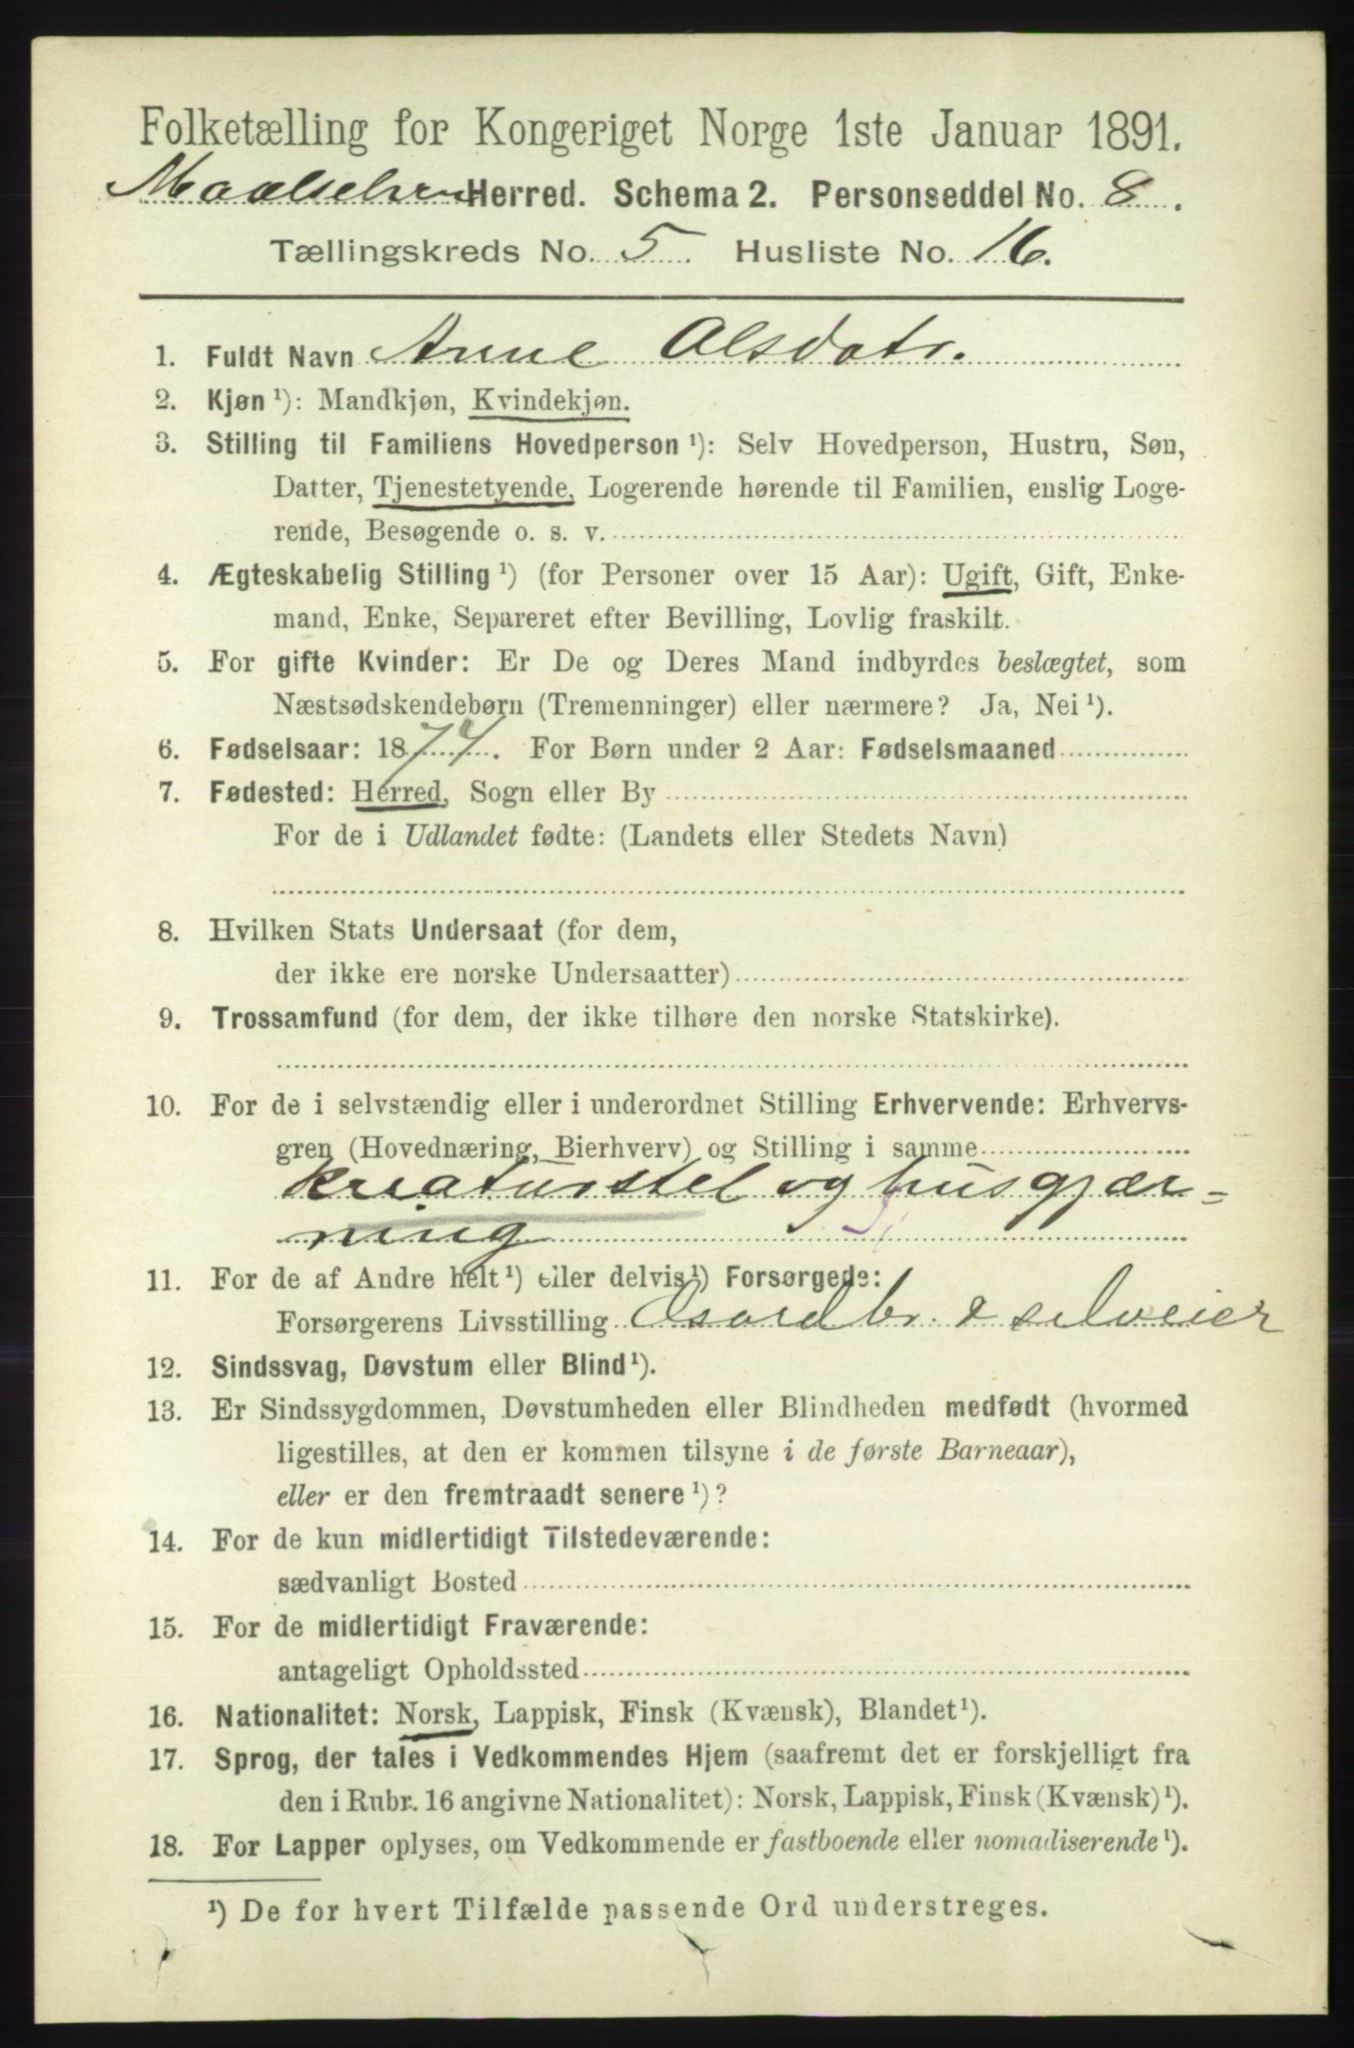 Folketælling for Kongeriget Norge 1ste Januar 1891.
Maalselven Herred. Schema 2. Personseddel No. 8.
Tællingskreds No. 5. Husliste No. 16.
1. Fuldt Navn Anne Olsdatr.
2. Kjøn ¹): Mandkjøn, Kvindekjøn.
3. Stilling til Familiens Hovedperson ¹): Selv Hovedperson, Hustru, Søn,
Datter, Tjenestetyende, Logerende hørende til Familien, enslig Loge-
rende, Besøgende o. s. v.
4. Ægteskabelig Stilling ¹) (for Personer over 15 Aar): Ugift, Gift, Enke-
mand, Enke, Separeret efter Bevilling, Lovlig fraskilt.
5. For gifte Kvinder: Er De og Deres Mand indbyrdes beslægtet, som
Næstsødskendebørn (Tremenninger) eller nærmere? Ja, Nei ¹).
6. Fødselsaar: 1874. For Børn under 2 Aar: Fødselsmaaned
7. Fødested: Herred, Sogn eller By
For de i Udlandet fødte: (Landets eller Stedets Navn)
8. Hvilken Stats Undersaat (for dem,
der ikke ere norske Undersaatter)
9. Trossamfund (for dem, der ikke tilhøre den norske Statskirke).
10. For de i selvstændig eller i underordnet Stilling Erhvervende: Erhvervs-
gren (Hovednæring, Bierhverv) og Stilling i samme
kreaturstel og husgjær-
ning
11. For de af Andre helt ¹) eller delvis ¹) Forsørgede:
Forsørgerens Livsstilling Gaardbr. & selveier
12. Sindssvag, Døvstum eller Blind ¹).
13. Er Sindssygdommen, Døvstumheden eller Blindheden medfødt (hvormed
ligestilles, at den er kommen tilsyne i de første Barneaar),
eller er den fremtraadt senere ¹)?
14. For de kun midlertidigt Tilstedeværende:
sædvanligt Bosted
15. For de midlertidigt Fraværende:
antageligt Opholdssted
16. Nationalitet: Norsk, Lappisk, Finsk (Kvænsk), Blandet ¹).
17. Sprog, der tales i Vedkommendes Hjem (saafremt det er forskjelligt fra
den i Rubr. 16 angivne Nationalitet): Norsk, Lappisk, Finsk (Kvænsk) ¹).
18. For Lapper oplyses, om Vedkommende er fastboende eller nomadiserende ¹).
¹) De for hvert Tilfælde passende Ord understreges.